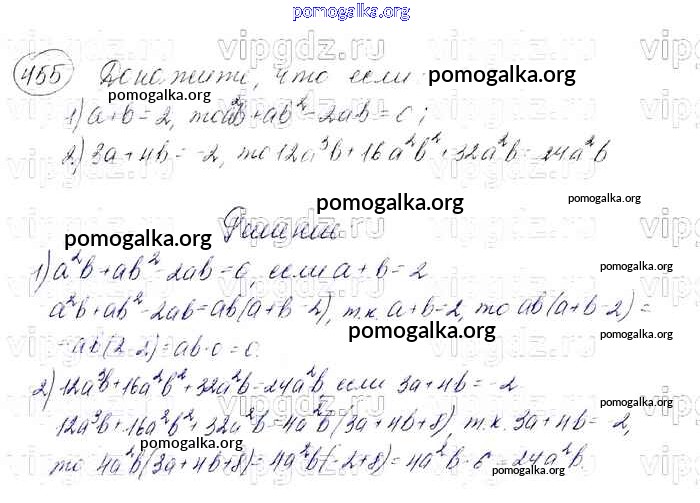 pomogalka.org
455 Докажите, что если
pomogalka.org pomogalka.org
1) a+b=2, то a²b+ab²-2ab=0;
2) 3a+4b=-2, то 12a³b+16a²b²+32a²b=24a²b
pomogalka.org
Решение
pomogalka.org
1) a²b+ab²-2ab=0, если a+b=2
pomogalka.org
a²b+ab²-2ab=ab(a+b-2), т.к. a+b=2, то ab(a+b-2)=
pomogalka.org
=ab(2-2)=ab·0=0.
2) 12a³b+16a²b²+32a²b=24a²b если 3a+4b=-2
pomogalka.org
12a³b+16a²b²+32a²b=4a²b(3a+4b+8), т.к. 3a+4b=-2,
pomogalka.org
то 4a²b(3a+4b+8)=4a²b(-2+8)=4a²b·6=24a²b.
pomogalka.org
vipgdz.ru